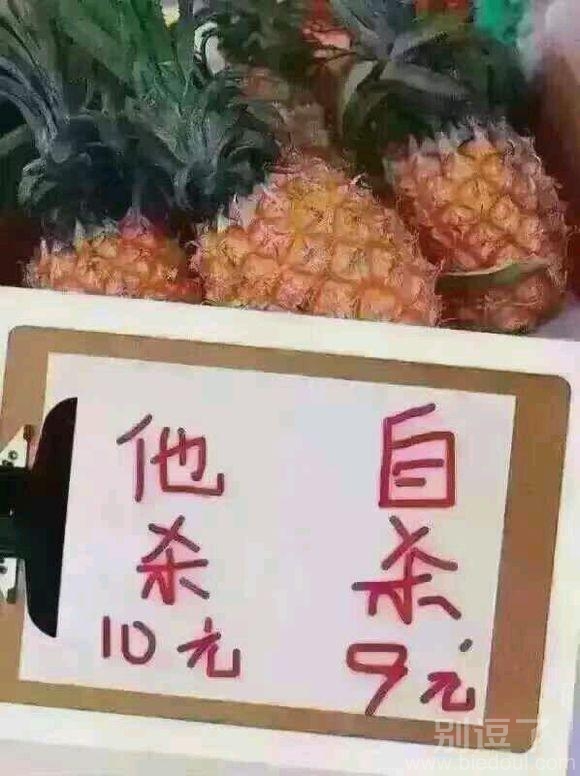 他杀
10元
自杀
9元
别逗了
www.biedoul.com